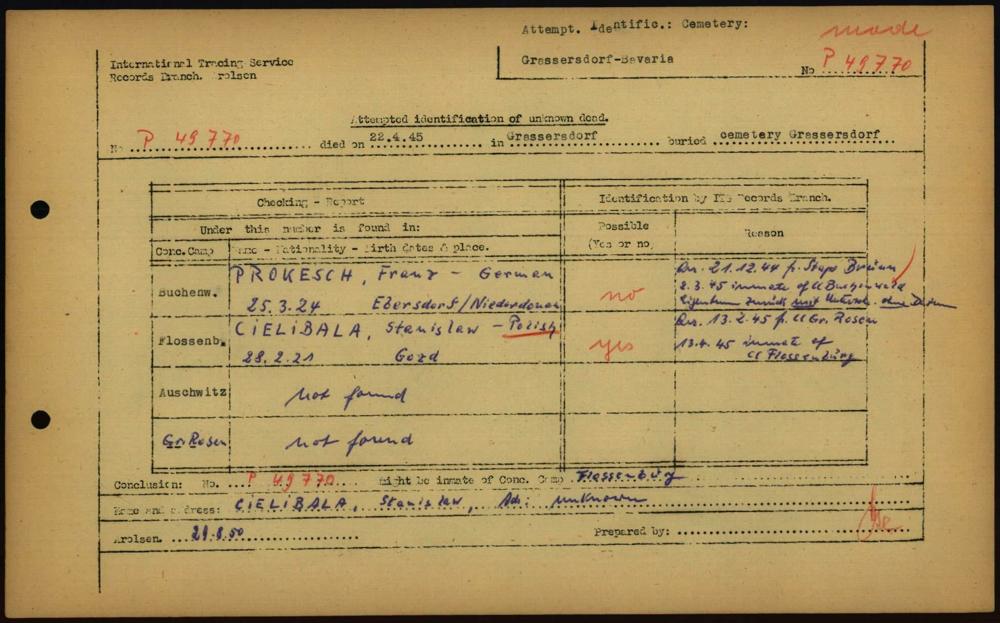 Attempt. Identific.: Cemetery:
made
International Tracing Service
Grassersdorf-Bavaria
No P 49770
Records Branch. Arolsen
Attempted identification of unknown dead.
No P 49770 died on 22.4.45 in Grassersdorf buried cemetery Grassersdorf
Checking - Report
Identification by ITS Records Branch.
Under this number is found in:
Possible
(Yes or no)
Reason
Conc.Camp
Name - Nationality - Birth dates & place.
Buchenw.
PROKESCH, Franz - German
25.3.24 Ebersdorf/Niederdonau
no
21.12.44 f. Stapo Brünn
2.3.45 inmate of Cl Buchenwald
Eigentum zurück mit Untersch. ohne Datum
Flossenb.
CIELIBALA, Stanislaw - Polish
28.2.21 Gozd
yes
13.2.45 f. Cl Gr. Rosen
13.4.45 inmate of
Cl Flossenbürg
Auschwitz
not found
Gr. Rosen
not found
Conclusion: No. P 49770 might be inmate of Conc. Camp Flossenbürg
Name and address: CIELIBALA, Stanislaw, Ad: unknown
Arolsen. 29.8.50
Prepared by: